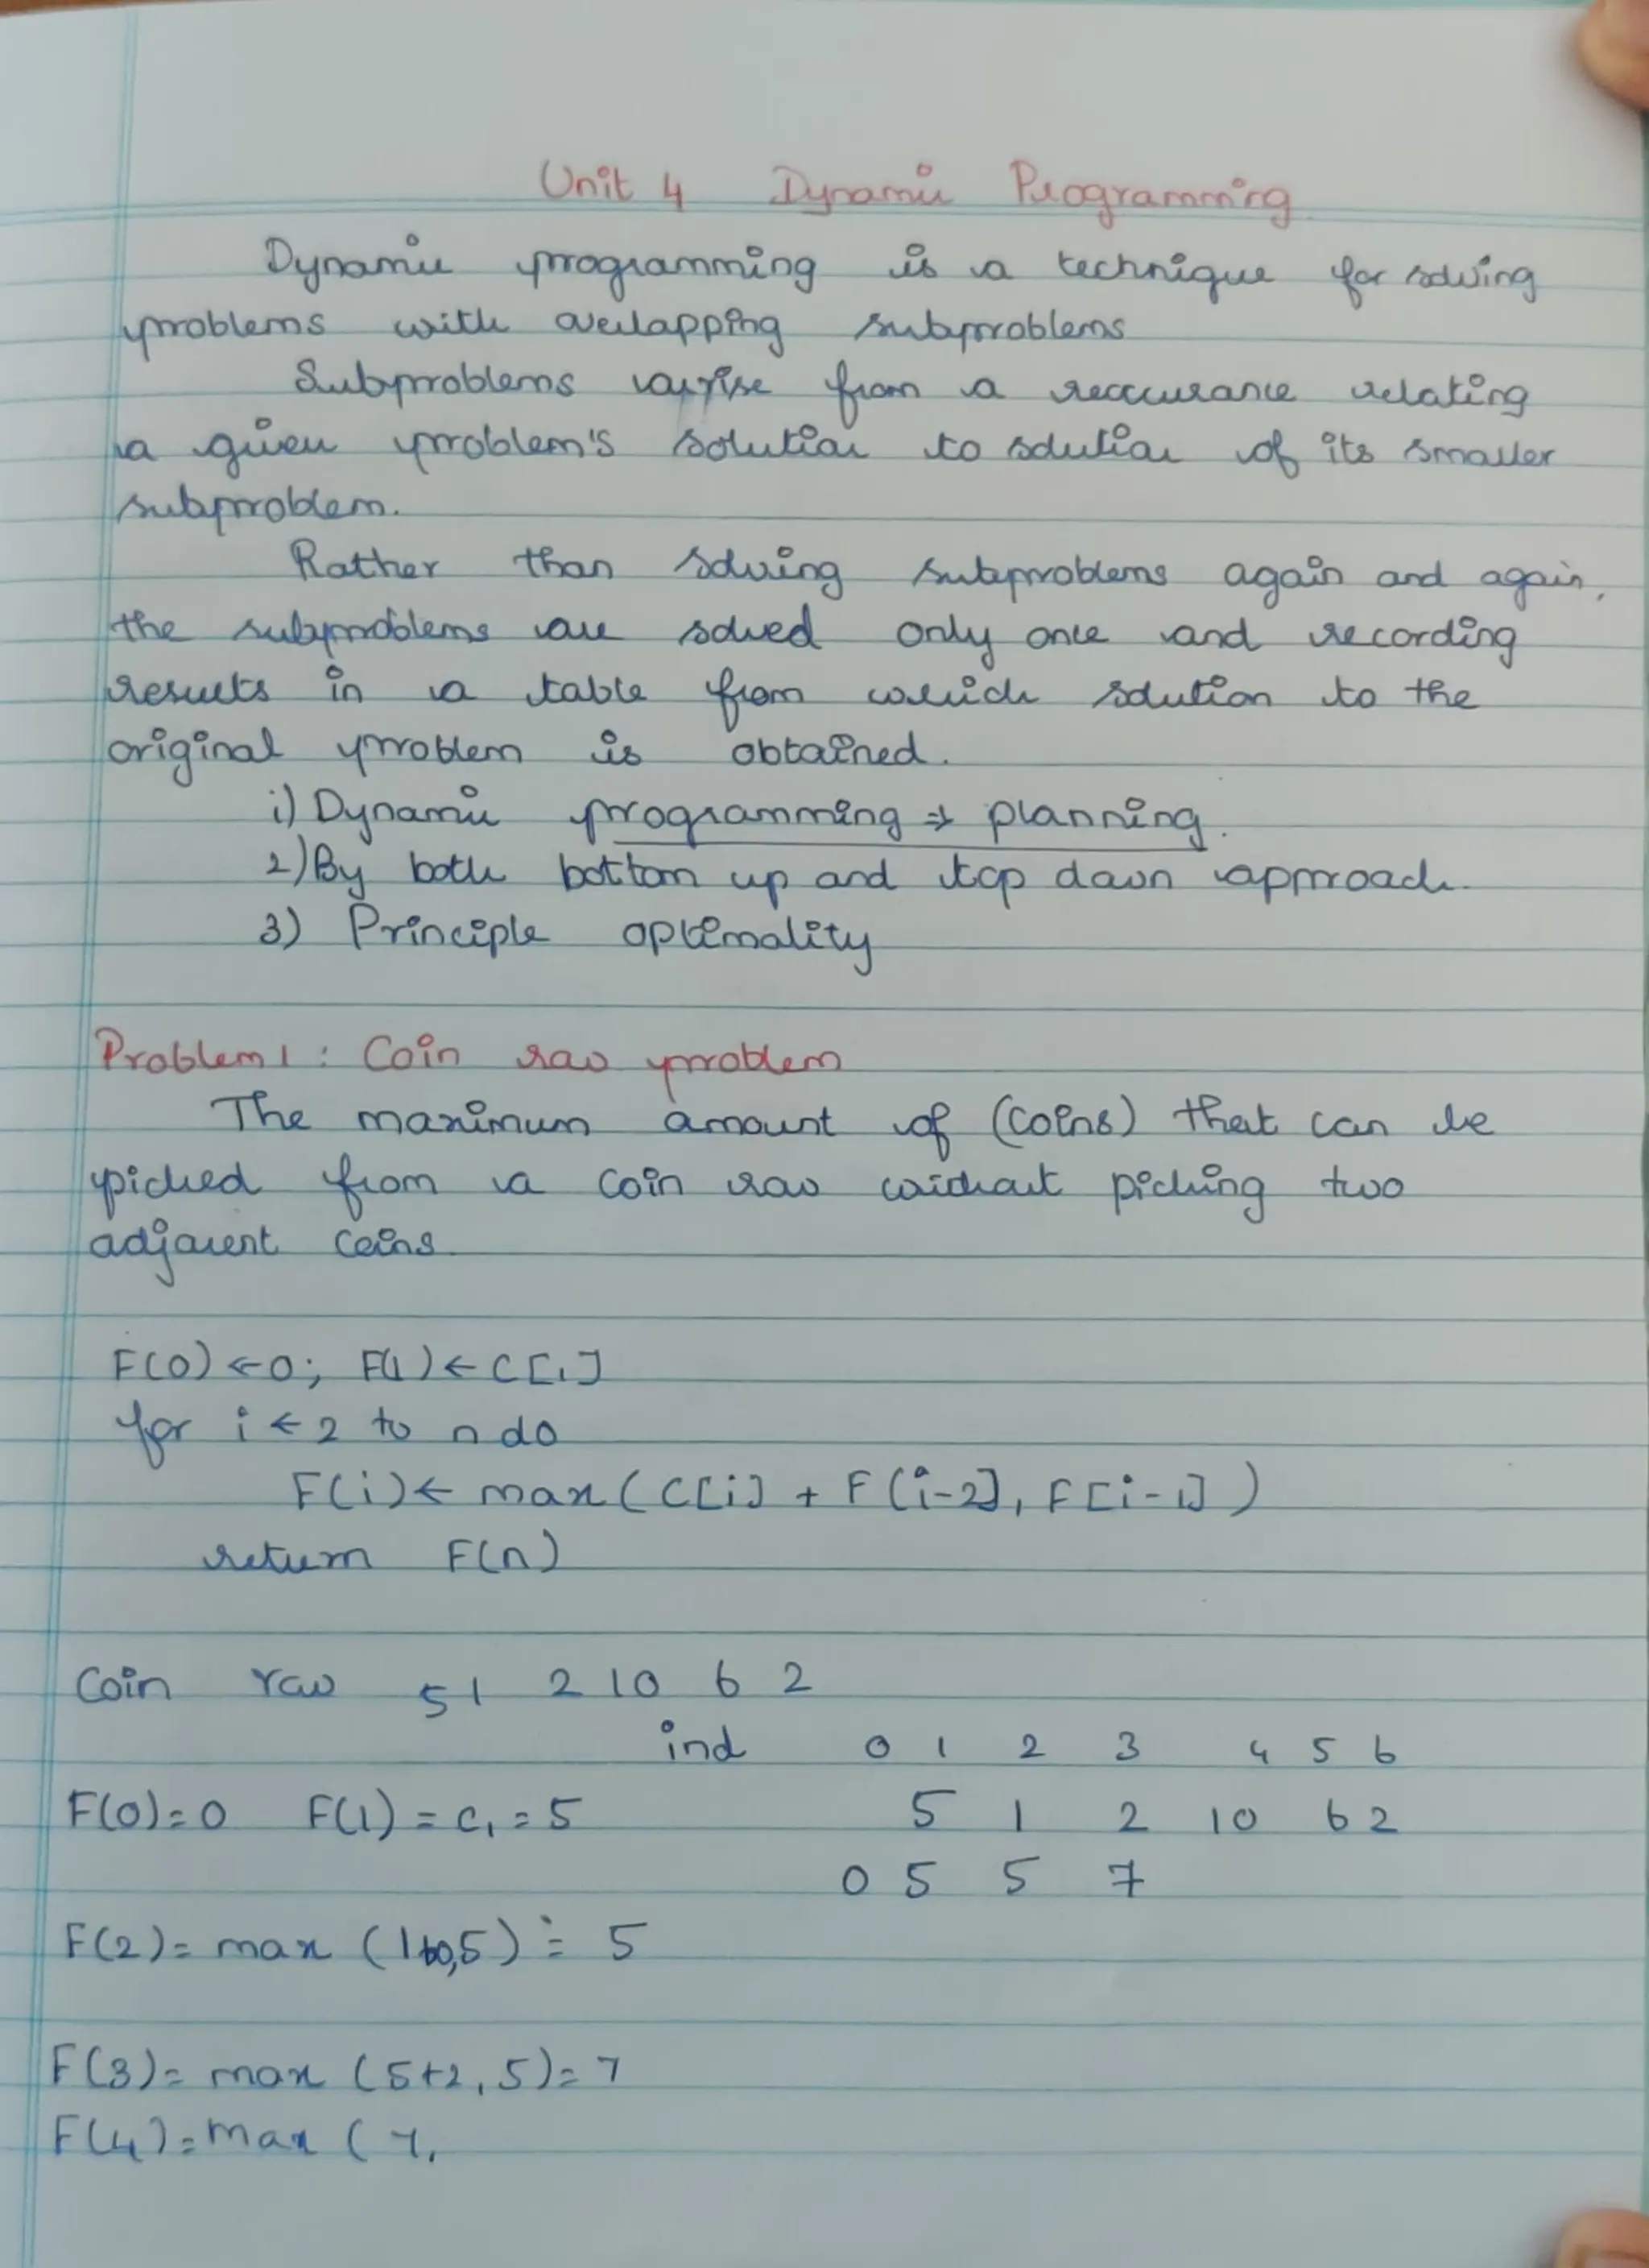 Unit 4 Dynamic Programming
Dynamic programming is a technique for solving
problems with overlapping subproblems
Subproblems arise from a reccurance relating
a given problem's solution to solution of its smaller
subproblem.
Rather than solving subproblems again and again,
the subproblems are solved only once and recording
results in a table from which solution to the
original problem is obtained.
i) Dynamic programming ⇒ planning.
2) By both bottom up and top down approach.
3) Principle optimality
Problem 1 : Coin row problem
The maximum amount of (coins) that can be
picked from a coin row without picking two
adjacent coins
F(0) ← 0; F(1) ← C[1]
for i ← 2 to n do
F(i) ← max(C[i] + F[i-2], F[i-1])
return F(n)
Coin row 5 1 2 10 6 2
ind 0 1 2 3 4 5 6
F(0)=0 F(1) = C₁ = 5 5 1 2 10 6 2
0 5 5 7
F(2)= max (1+0,5) = 5
F(3)= max (5+2, 5)= 7
F(4)= max ( 7,